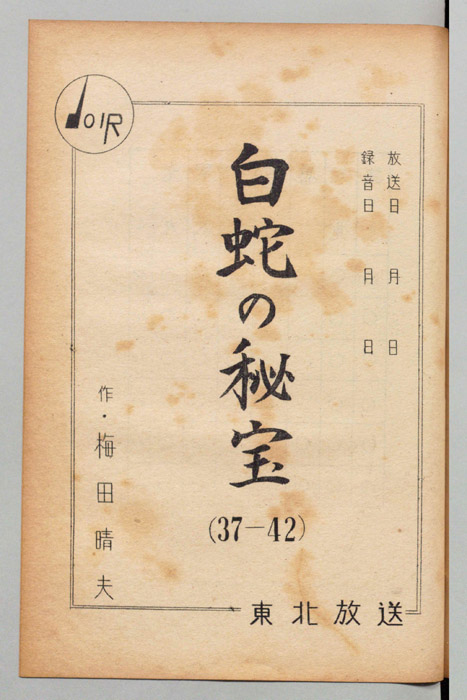 JOIR
放送日 月 日
録音日 月 日
白蛇の秘宝
(37—42)
作・梅田晴夫
東北放送